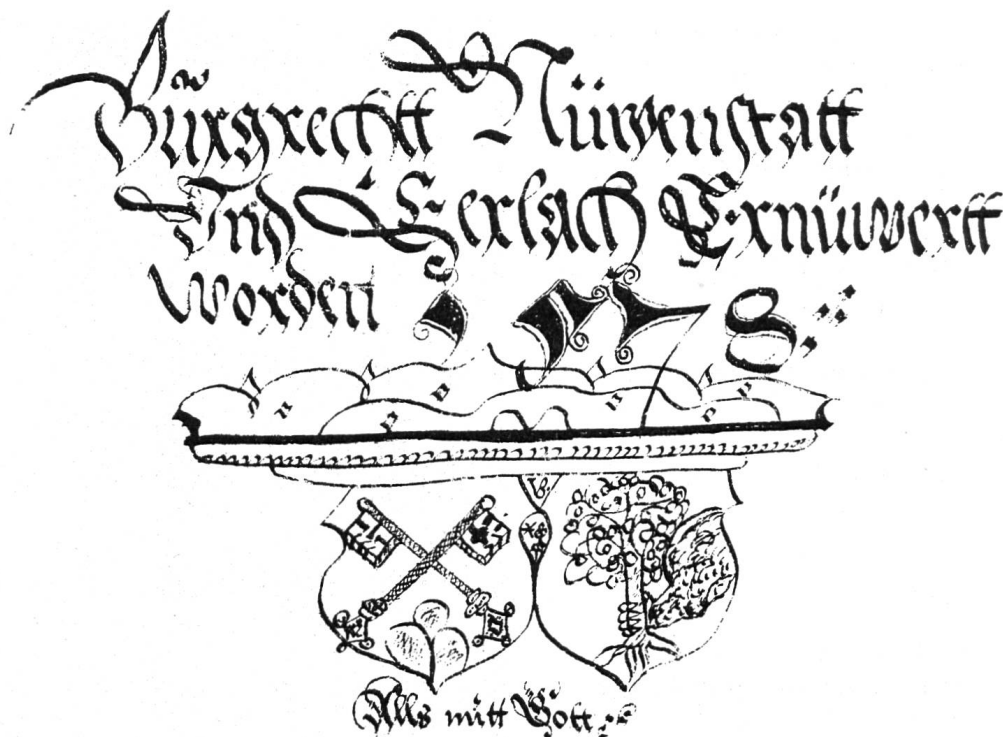 Bürgrechtt Nüwenstatt
Vnd Eerlach Ernüwertt
worden 1578
Alls mitt Gott